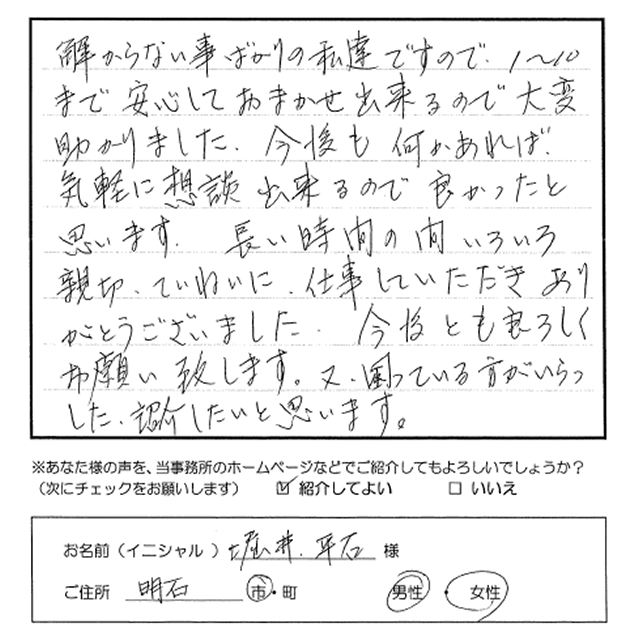 解からない事ばかりの私達ですので、1〜10
まで安心しておまかせ出来るので大変
助かりました。今後も何かあれば、
気軽に想談出来るので良かったと
思います。長い時間の間いろいろ
親切、ていねいに、仕事していただきあり
がとうございました。今後とも良ろしく
お願い致します。又、困っている方がいらっ
したら、紹介したいと思います。
※あなた様の声を、当事務所のホームページなどでご紹介してもよろしいでしょうか？
（次にチェックをお願いします） ☑ 紹介してよい □ いいえ
お名前（イニシャル） 堀井、平石 様
ご住所 明石 市・町 男性・女性